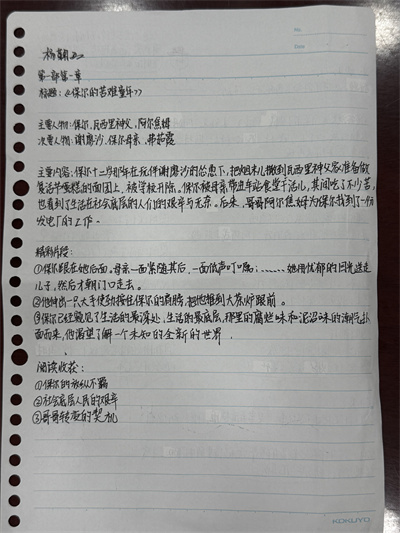 No.
Date
杨颖
第一部第一章
标题:《保尔的苦难童年》
主要人物:保尔,瓦西里神父,阿尔焦姆
次要人物:谢廖沙.保尔母亲.弗茹霞
主要内容:保尔十二岁那年在玩伴谢廖沙的怂恿下,把烟末儿撒到瓦西里神父家准备做
复活节蛋糕的面团上,被学校开除。保尔被母亲带进车站食堂干活儿,其间吃了不少苦,
也看到了生活在社会底层的人们的艰辛与无奈。后来,哥哥阿尔焦姆为保尔找到了一份
发电厂的工作。
精彩片段:
①保尔跟在她后面。母亲一面紧随其后,一面低声叮嘱:……她用忧郁的目光送走
儿子,然后才朝门口走去。
②他伸出一只大手使劲按住保尔的肩膀,把他推到大茶炉跟前。
③保尔已经窥见了生活的最深处,生活的最底层,那里的腐烂味和泥沼味的潮气扑
面而来,他渴望了解一个未知的全新的世界.
阅读收获:
①保尔的放纵不羁
②社会底层人民的艰辛
③哥哥转变的契机
KOKUYO